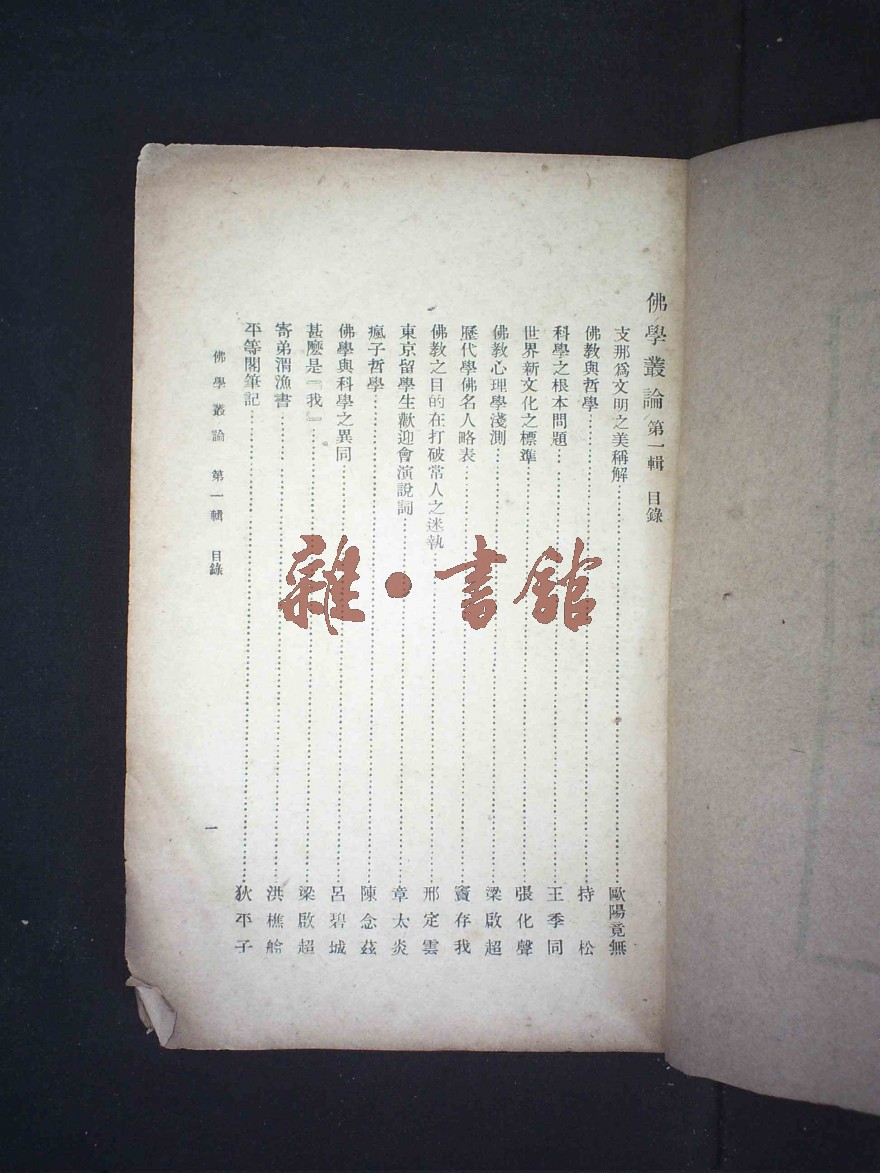 佛學叢論 第一輯 目錄
支那爲文明之美稱解 歐陽竟無
佛教與哲學 持松
科學之根本問題 王季同
世界新文化之標準 張化聲
佛教心理學淺測 梁啟超
歷代學佛名人略表 竇存我
佛教之目的在打破常人之迷執 邢定雲
東京留學生歡迎會演說詞 章太炎
瘋子哲學 陳念茲
佛學與科學之異同 呂碧城
甚麽是『我』 梁啟超
寄弟渭漁書 洪樵舲
平等閣筆記 狄平子
佛學叢論 第一輯 目錄
一
雜·書館